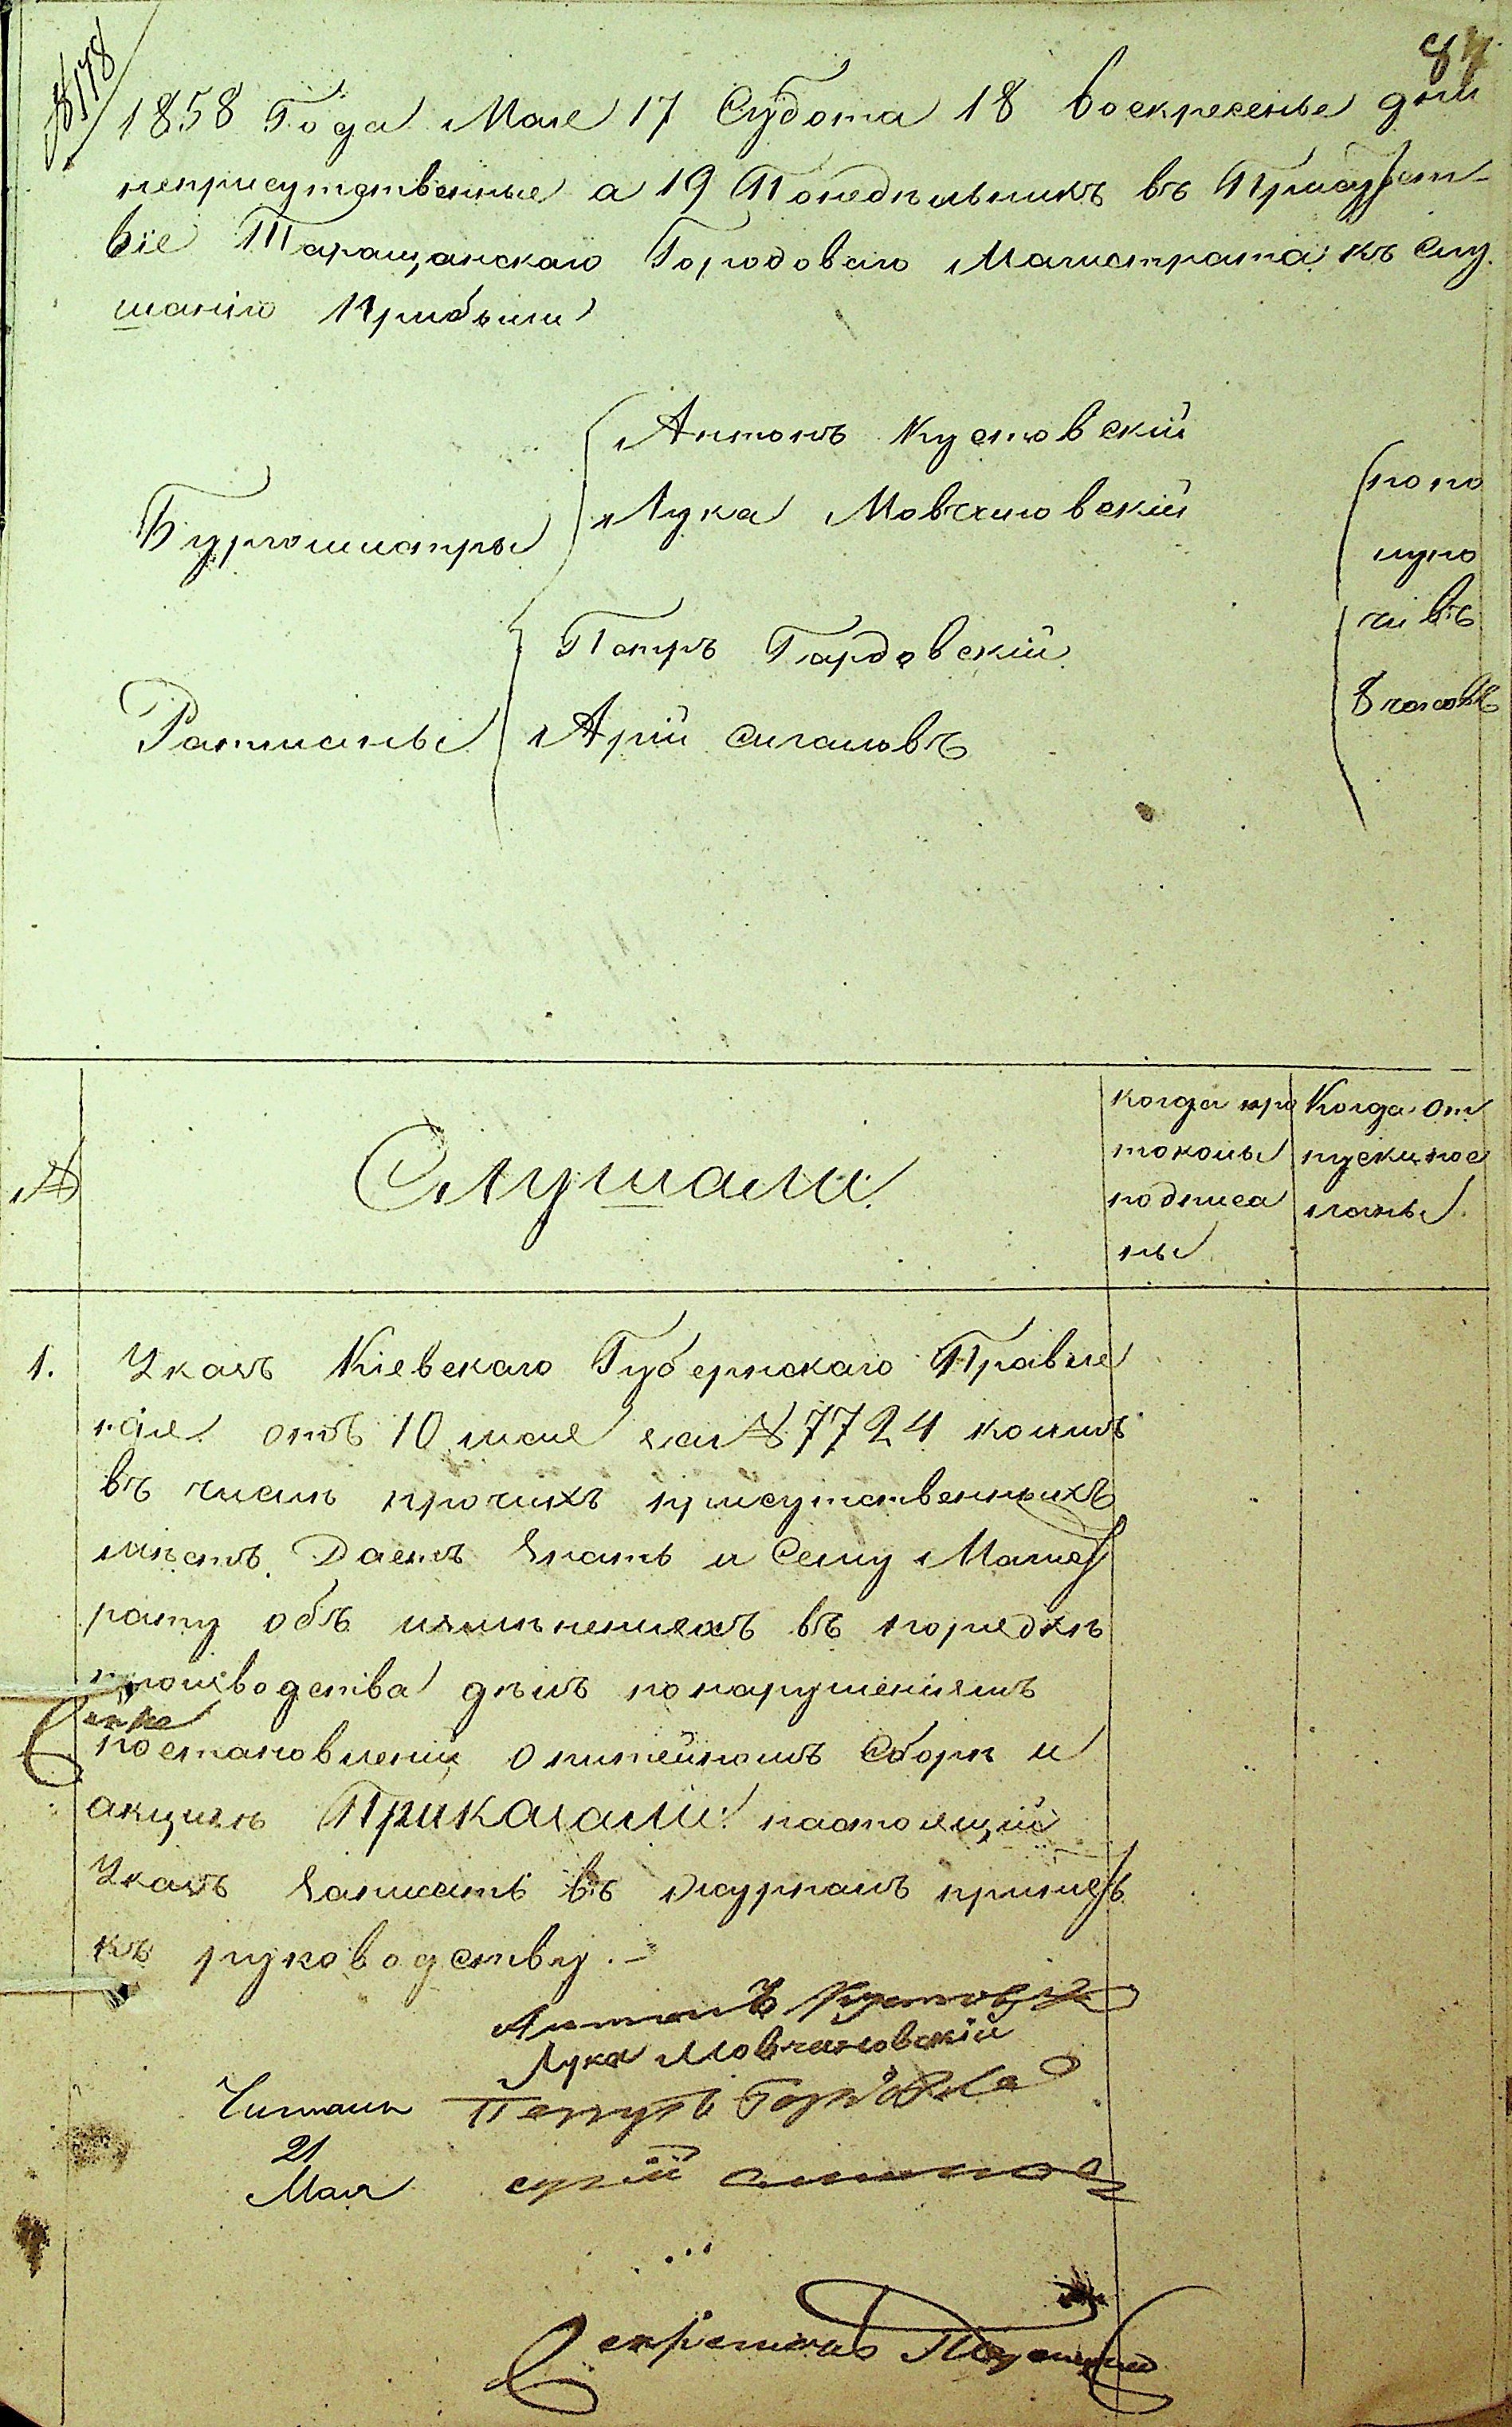 №178
87
1858 Года Мая 17 Субота 18 воскресенье дни
неприсутственные а 19 Понедѣльникъ въ Присутст-
віе Таращанскаго Городоваго Магистрата къ слу
шанію Прибыли
Антонъ Кустовскій
Лука Мовчановскій
Бургомистры
Петръ Гордовскій
Ратманы
Арій
по по
луно
чи въ
8 часовъ
№
Слушали
Когда про
токолы
подписа
ны
Когда от
пуски пос
ланы
1.
Указъ Кіевскаго Губернскаго Правле
нія отъ 10 мая за №7724 коимъ
въ числѣ прочихъ присутственныхъ
мѣстъ Даетъ знать и Сему Магист
рату объ измѣненіяхъ въ порядкѣ
производства дѣлъ по нарушеніямъ
постановленій о питейномъ Сборѣ и
акцизѣ Приказали: настоящій
Указъ Записать въ журналъ принять
къ руководству.-
Антонъ
Лука Мовчановскій
Читалъ
21
Мая
Секретарь